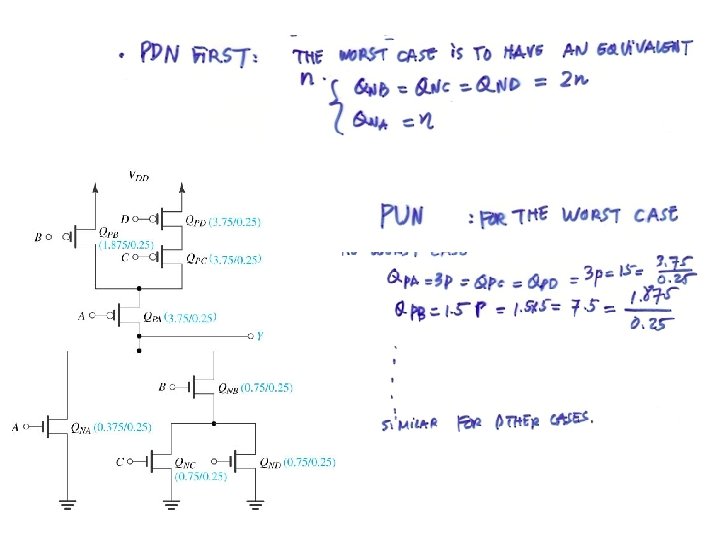 • PDN FIRST: THE WORST CASE IS TO HAVE AN EQUIVALENT
n. { QNB = QNC = QND = 2n
QNA = n
VDD
D QPD (3.75/0.25)
B QPB (1.875/0.25)
C QPC (3.75/0.25)
A QPA (3.75/0.25)
Y
B QNB (0.75/0.25)
A QNA (0.375/0.25)
C QNC (0.75/0.25)
QND (0.75/0.25)
PUN : FOR THE WORST CASE
WORST CASE
QPA = 3P = QPC = QPD = 3p = 15 = 3.75/0.25
QPB = 1.5 P = 1.5x5 = 7.5 = 1.875/0.25
SIMILAR FOR OTHER CASES.